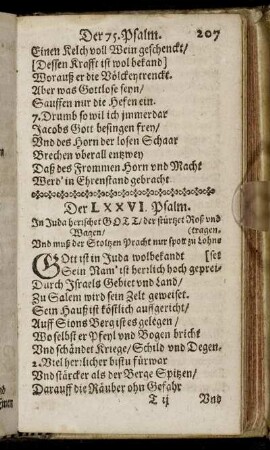 Der 75. Psalm. 207
Einen Kelch voll Wein geschenckt/
[Dessen Krafft ist wol bekand]
Worauß er die Völckeytrenckt.
Aber was Gottlose seyn/
Sauffen nur die Hefen ein.
7. Drumb so wil ich jmmerdar
Jacobs Gott besingen frey/
Vnd des Horn der losen Schaar
Brechen vberall entzwey
Daß des Frommen Horn vnd Macht
Werd' in Ehrenstand gebracht
Der LXXVI. Psalm.
In Juda herrschet GOTT/ der stürtzet Roß vnd
Wagen/ (tragen.
Vnd muß der Stoltzen Pracht nur spott zu Lohne
GOtt ist in Juda wolbekandt [set
Sein Nam' ist herrlich hoch geprei-
Durch Jsraels Gebiet vnd Land/
Zu Salem wird sein Zelt geweiset.
Sein Hauß ist köstlich auffgericht/
Auff Sions Berg ist es gelegen/
Wo selbst er Pfeyl vnd Bogen bricht
Vnd schändet Kriege/ Schild vnd Degen.
2. Viel herrlicher bistu fürwar
Vnd stärcker als der Berge Spitzen/
Darauff die Räuber ohn Gefahr
T ij Vnd